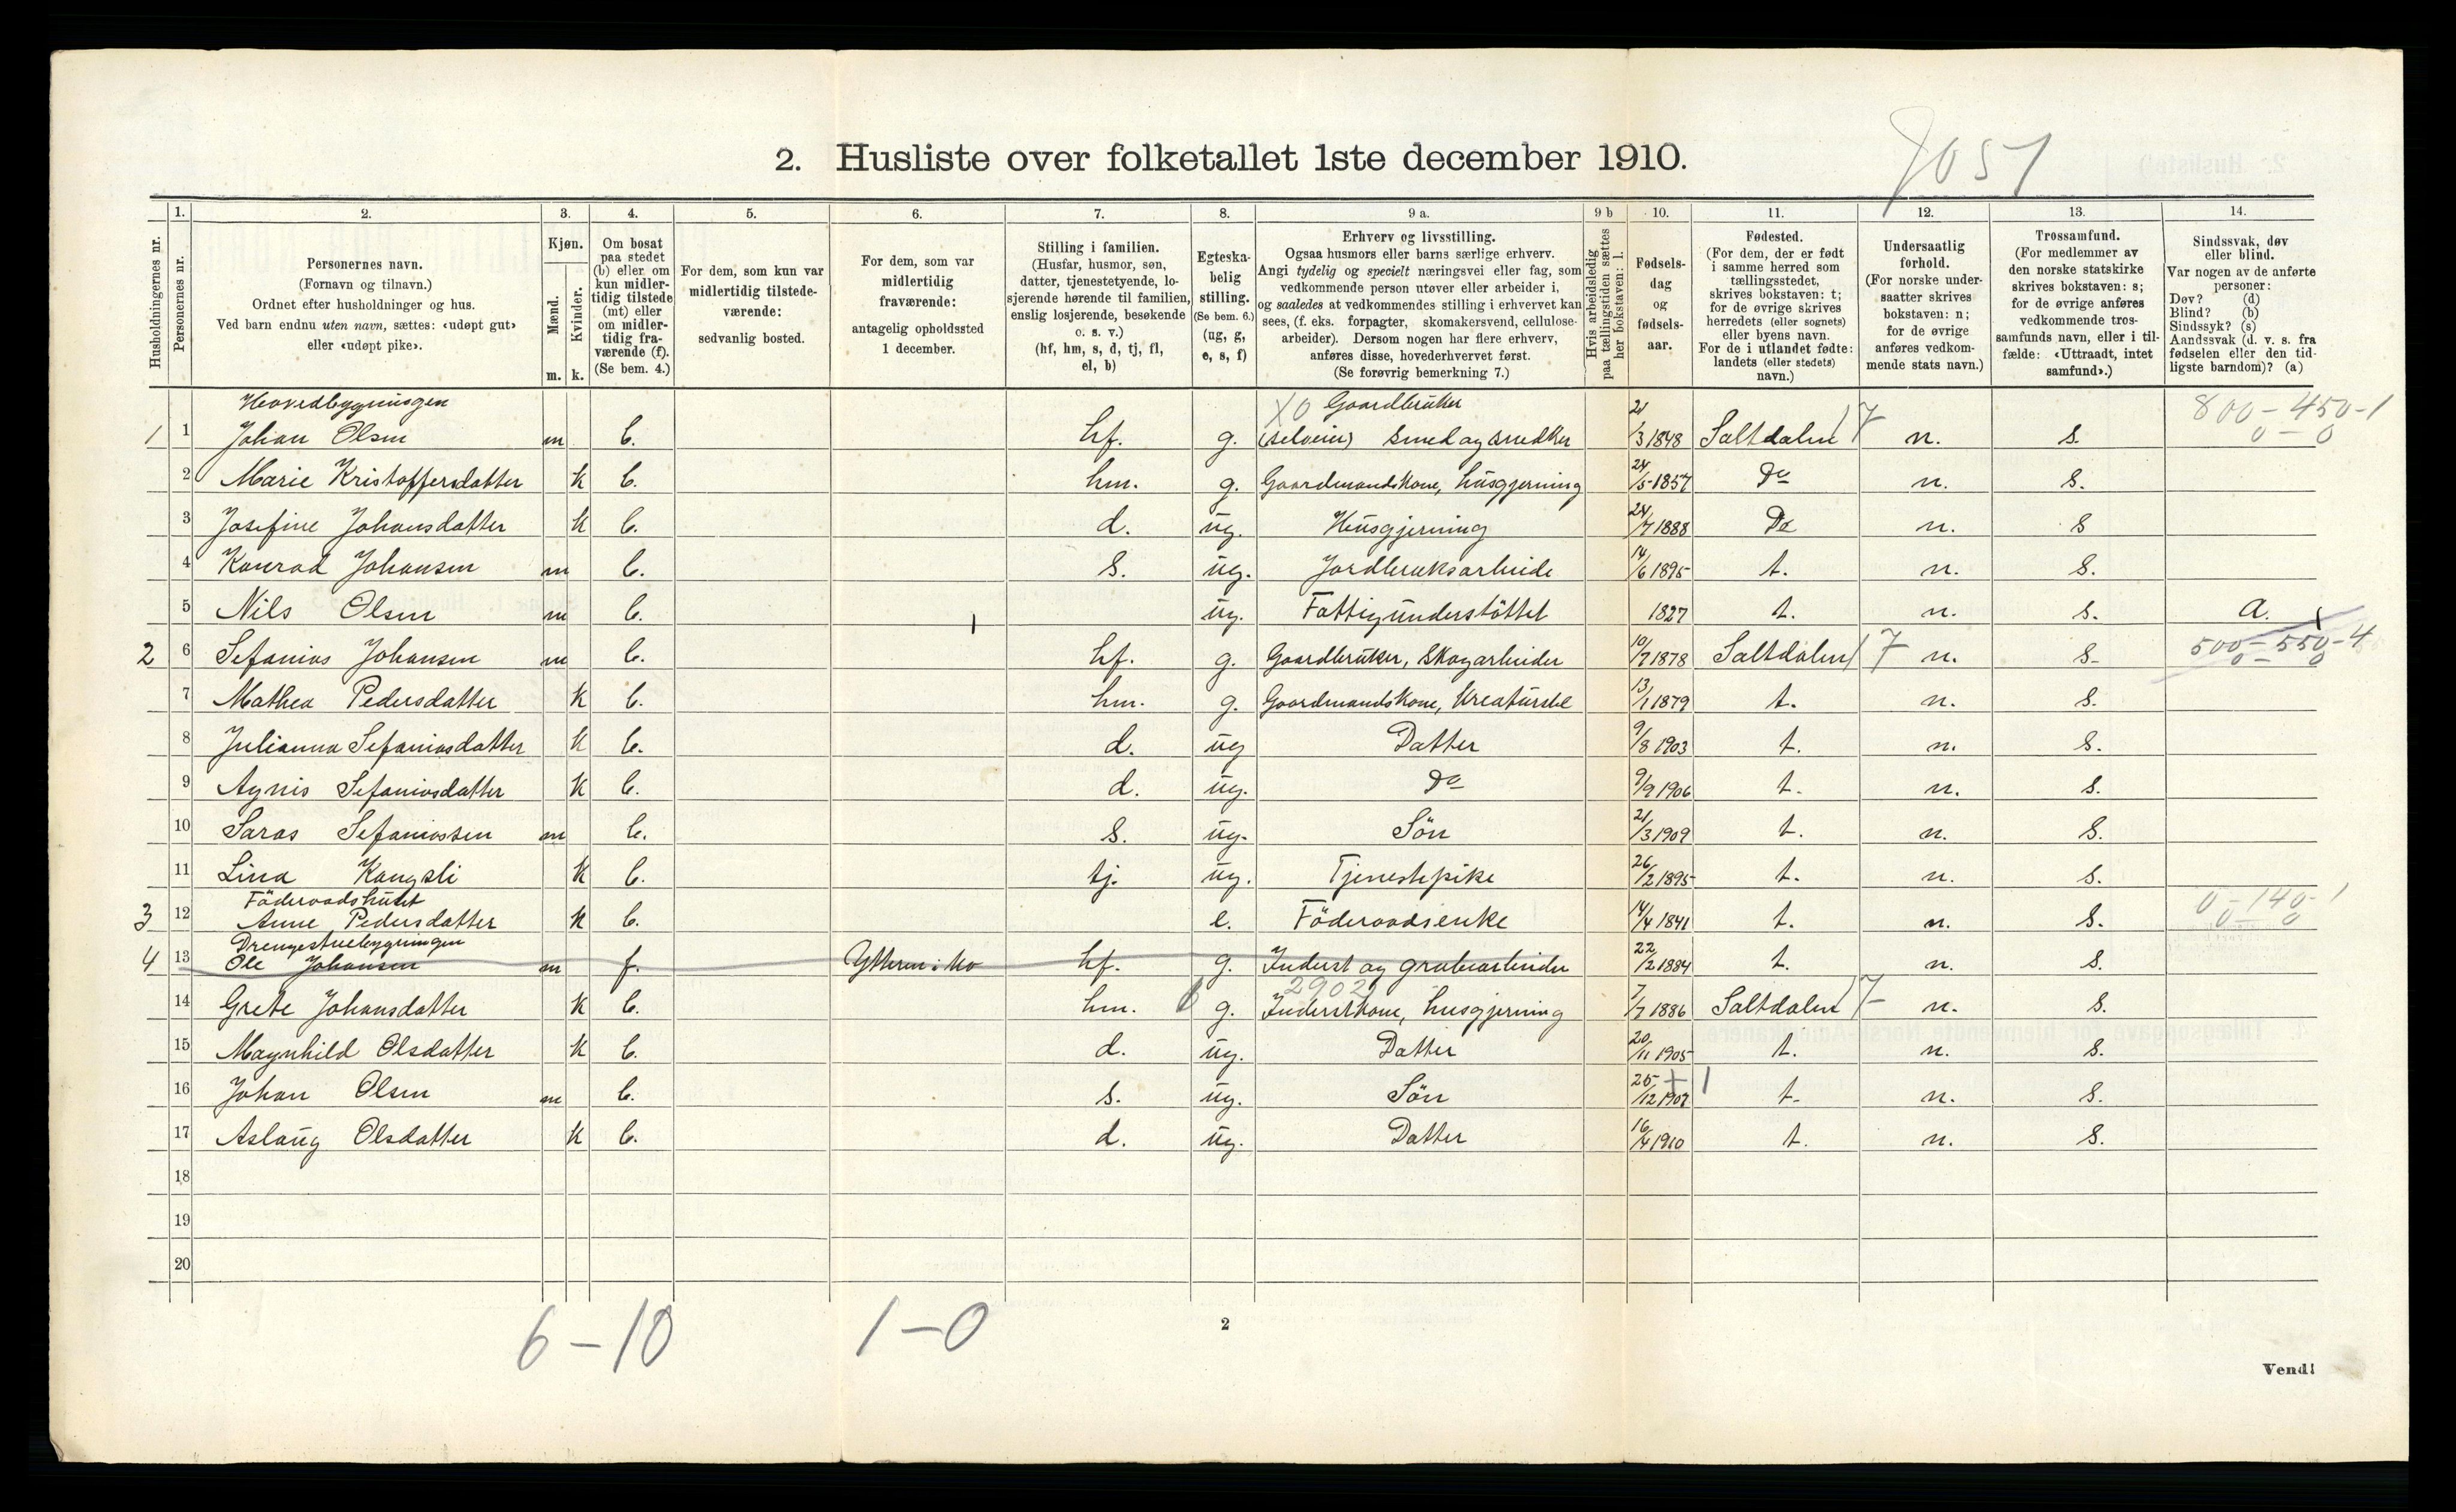 7051
2. Husliste over folketallet 1ste december 1910.
Husholdningernes nr.
1. Personernes nr.
2. Personernes navn. (Fornavn og tilnavn.) Ordnet efter husholdninger og hus. Ved barn endnu uten navn, sættes: «udøpt gut» eller «udøpt pike».
3. Kjøn. Mænd. m. Kvinder. k.
4. Om bosat paa stedet (b) eller om kun midlertidig tilstede (mt) eller om midlertidig fraværende (f). (Se bem. 4.)
5. For dem, som kun var midlertidig tilstedeværende: sedvanlig bosted.
6. For dem, som var midlertidig fraværende: antagelig opholdssted 1 december.
7. Stilling i familien. (Husfar, husmor, søn, datter, tjenestetyende, losjerende hørende til familien, enslig losjerende, besøkende o. s. v.) (hf, hm, s, d, tj, fl, el, b)
8. Egteskabelig stilling. (Se bem. 6.) (ug, g, e, s, f)
9 a. Erhverv og livsstilling. Ogsaa husmors eller barns særlige erhverv. Angi tydelig og specielt næringsvei eller fag, som vedkommende person utøver eller arbeider i, og saaledes at vedkommendes stilling i erhvervet kan sees, (f. eks. forpagter, skomakersvend, cellulosearbeider). Dersom nogen har flere erhverv, anføres disse, hovederhvervet først. (Se forøvrig bemerkning 7.)
9 b Hvis arbeidsledig paa tællingstiden sættes her bokstaven: l.
10. Fødselsdag og fødselsaar.
11. Fødested. (For dem, der er født i samme herred som tællingsstedet, skrives bokstaven: t; for de øvrige skrives herredets (eller sognets) eller byens navn. For de i utlandet fødte: landets (eller stedets) navn.)
12. Undersaatlig forhold. (For norske undersaatter skrives bokstaven: n; for de øvrige anføres vedkommende stats navn.)
13. Trossamfund. (For medlemmer av den norske statskirke skrives bokstaven: s; for de øvrige anføres vedkommende trossamfunds navn, eller i tilfælde: «Uttraadt, intet samfund».)
14. Sindssvak, døv eller blind. Var nogen av de anførte personer: Døv? (d) Blind? (b) Sindssyk? (s) Aandssvak (d. v. s. fra fødselen eller den tidligste barndom)? (a)
Hovedbygningen X0 Gaardbruker 800-450-1
1 1 Johan Olsen m b. hf. g. (selveier) Smed og snedker 21/3 1848 Saltdalen 7 n. s. 0-0
2 Marie Kristoffersdatter k b. hm. g. Gaardmandskone, husgjerning 24/5 1857 Do n. s.
3 Josefine Johansdatter k b. d. ug. Husgjerning 24/7 1888 Do n. s
4 Konrad Johansen m b. s. ug. Jordbruksarbeide 14/6 1895 t. n. s.
5 Nils Olsen m b. ug. Fattigunderstöttet 1827 t. n. s. a.
2 6 Sefanias Johansen m b. hf. g. Gaardbruker, Skogarbeider 10/7 1878 Saltdalen 7 n. s. 500-550-4 0-0
7 Mathea Pedersdatter k b. hm. g. Gaardmandskone, Kreaturstel 13/1 1879 t. n. s.
8 Julianna Sefaniasdatter k b. d. ug Datter 9/8 1903 t. n. s.
9 Agnis Sefaniasdatter k b. d. ug. Do 9/9 1906 t. n. s.
10 Saras Sefaniassen m b. s. ug. Sön 21/3 1909 t. n. s.
11 Lina Kangsli k b. tj. ug. Tjenestepike 26/2 1895 t. n. s.
Föderaadshuset
3 12 Anne Pedersdatter k b. e. Föderaadsenke 14/4 1841 t. n. s. 0-140-1 0-0
Drengestuebygningen
4 13 Ole Johansen m f. Ytteren i Mo hf. g. Inderst og grubearbeider 22/2 1884 t. n. s.
2902
14 Grete Johansdatter k b. hm. g. Inderstkone, husgjerning 7/7 1886 Saltdalen 7 n. s.
15 Magnhild Olsdatter k b. d. ug. Datter 20/11 1905 t. n. s.
16 Johan Olsen m b. s. ug. Sön 25/12 1907 + 1 t. n. s.
17 Aslaug Olsdatter k b. d. ug. Datter 16/4 1910 t. n. s.
18
19
20
6-10 1-0
2
Vend!